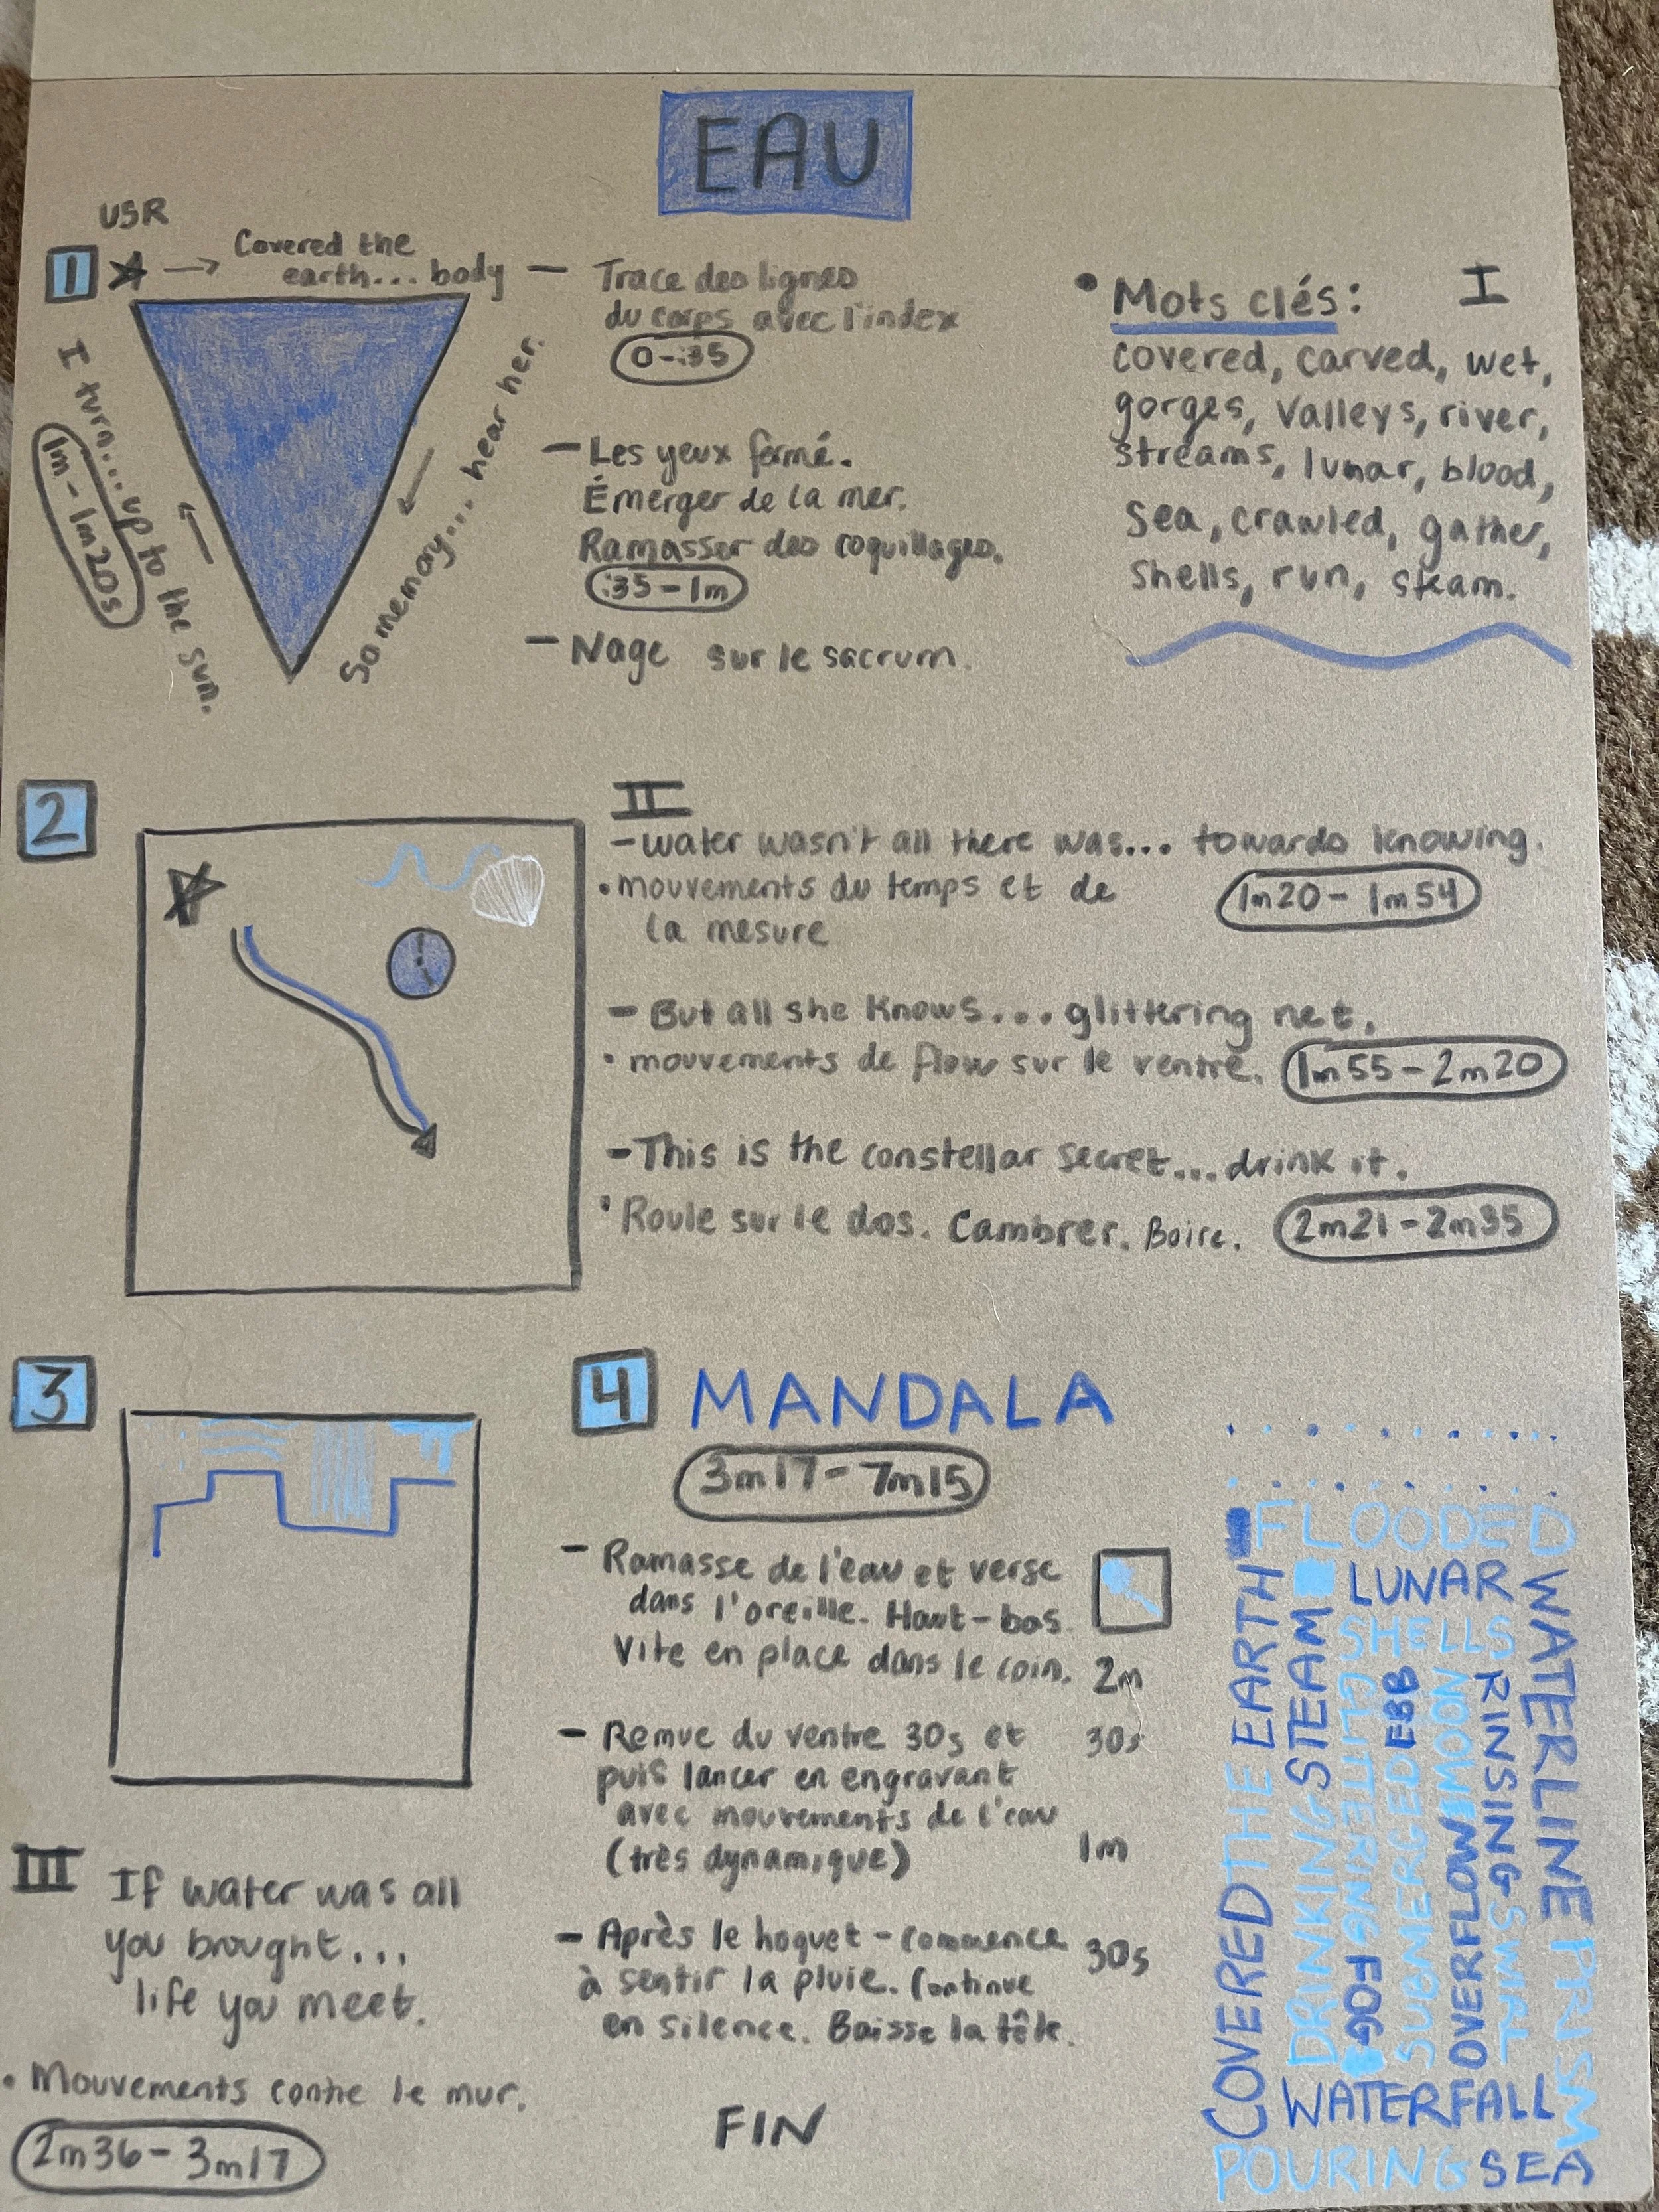 EAU
USR
1
Covered the
earth... body
So memory... hear her.
I turn... up to the sun.
1m - 1m20s
- Trace des lignes
du corps avec l'index
0-:35
- Les yeux fermé.
Émerger de la mer.
Ramasser des coquillages.
:35-1m
- Nage sur le sacrum.
I
• Mots clés:
covered, carved, wet,
gorges, valleys, river,
streams, lunar, blood,
sea, crawled, gather,
shells, run, steam.
2
II
- water wasn't all there was... towards knowing.
• mouvements du temps et de
la mesure
1m20 - 1m54
- But all she knows... glittering net.
• mouvements de flow sur le ventre.
1m55-2m20
- This is the constellar secret... drink it.
• Roule sur le dos. Cambrer. Boire.
2m21-2m35
3
III
If water was all
you brought...
life you meet.
• Mouvements contre le mur.
2m36-3m17
4 MANDALA
3m17-7m15
- Ramasse de l'eau et verse
dans l'oreille. Haut-bas.
Vite en place dans le coin.
2m
- Remue du ventre 30s et
puis lancer en engravant
avec mouvements de l'eau
(très dynamique)
30s
1m
- Après le hoquet - commence
à sentir la pluie. Continue
en silence. Baisse la tête.
30s
FIN
FLOODED
LUNAR
SHELLS
COVERED THE EARTH
DRINKING STEAM
GLITTERING FOG
SUBMERGED EBB
OVERFLOW MOON
RINSING SWIRL
WATERLINE PRISM
WATERFALL
POURING SEA